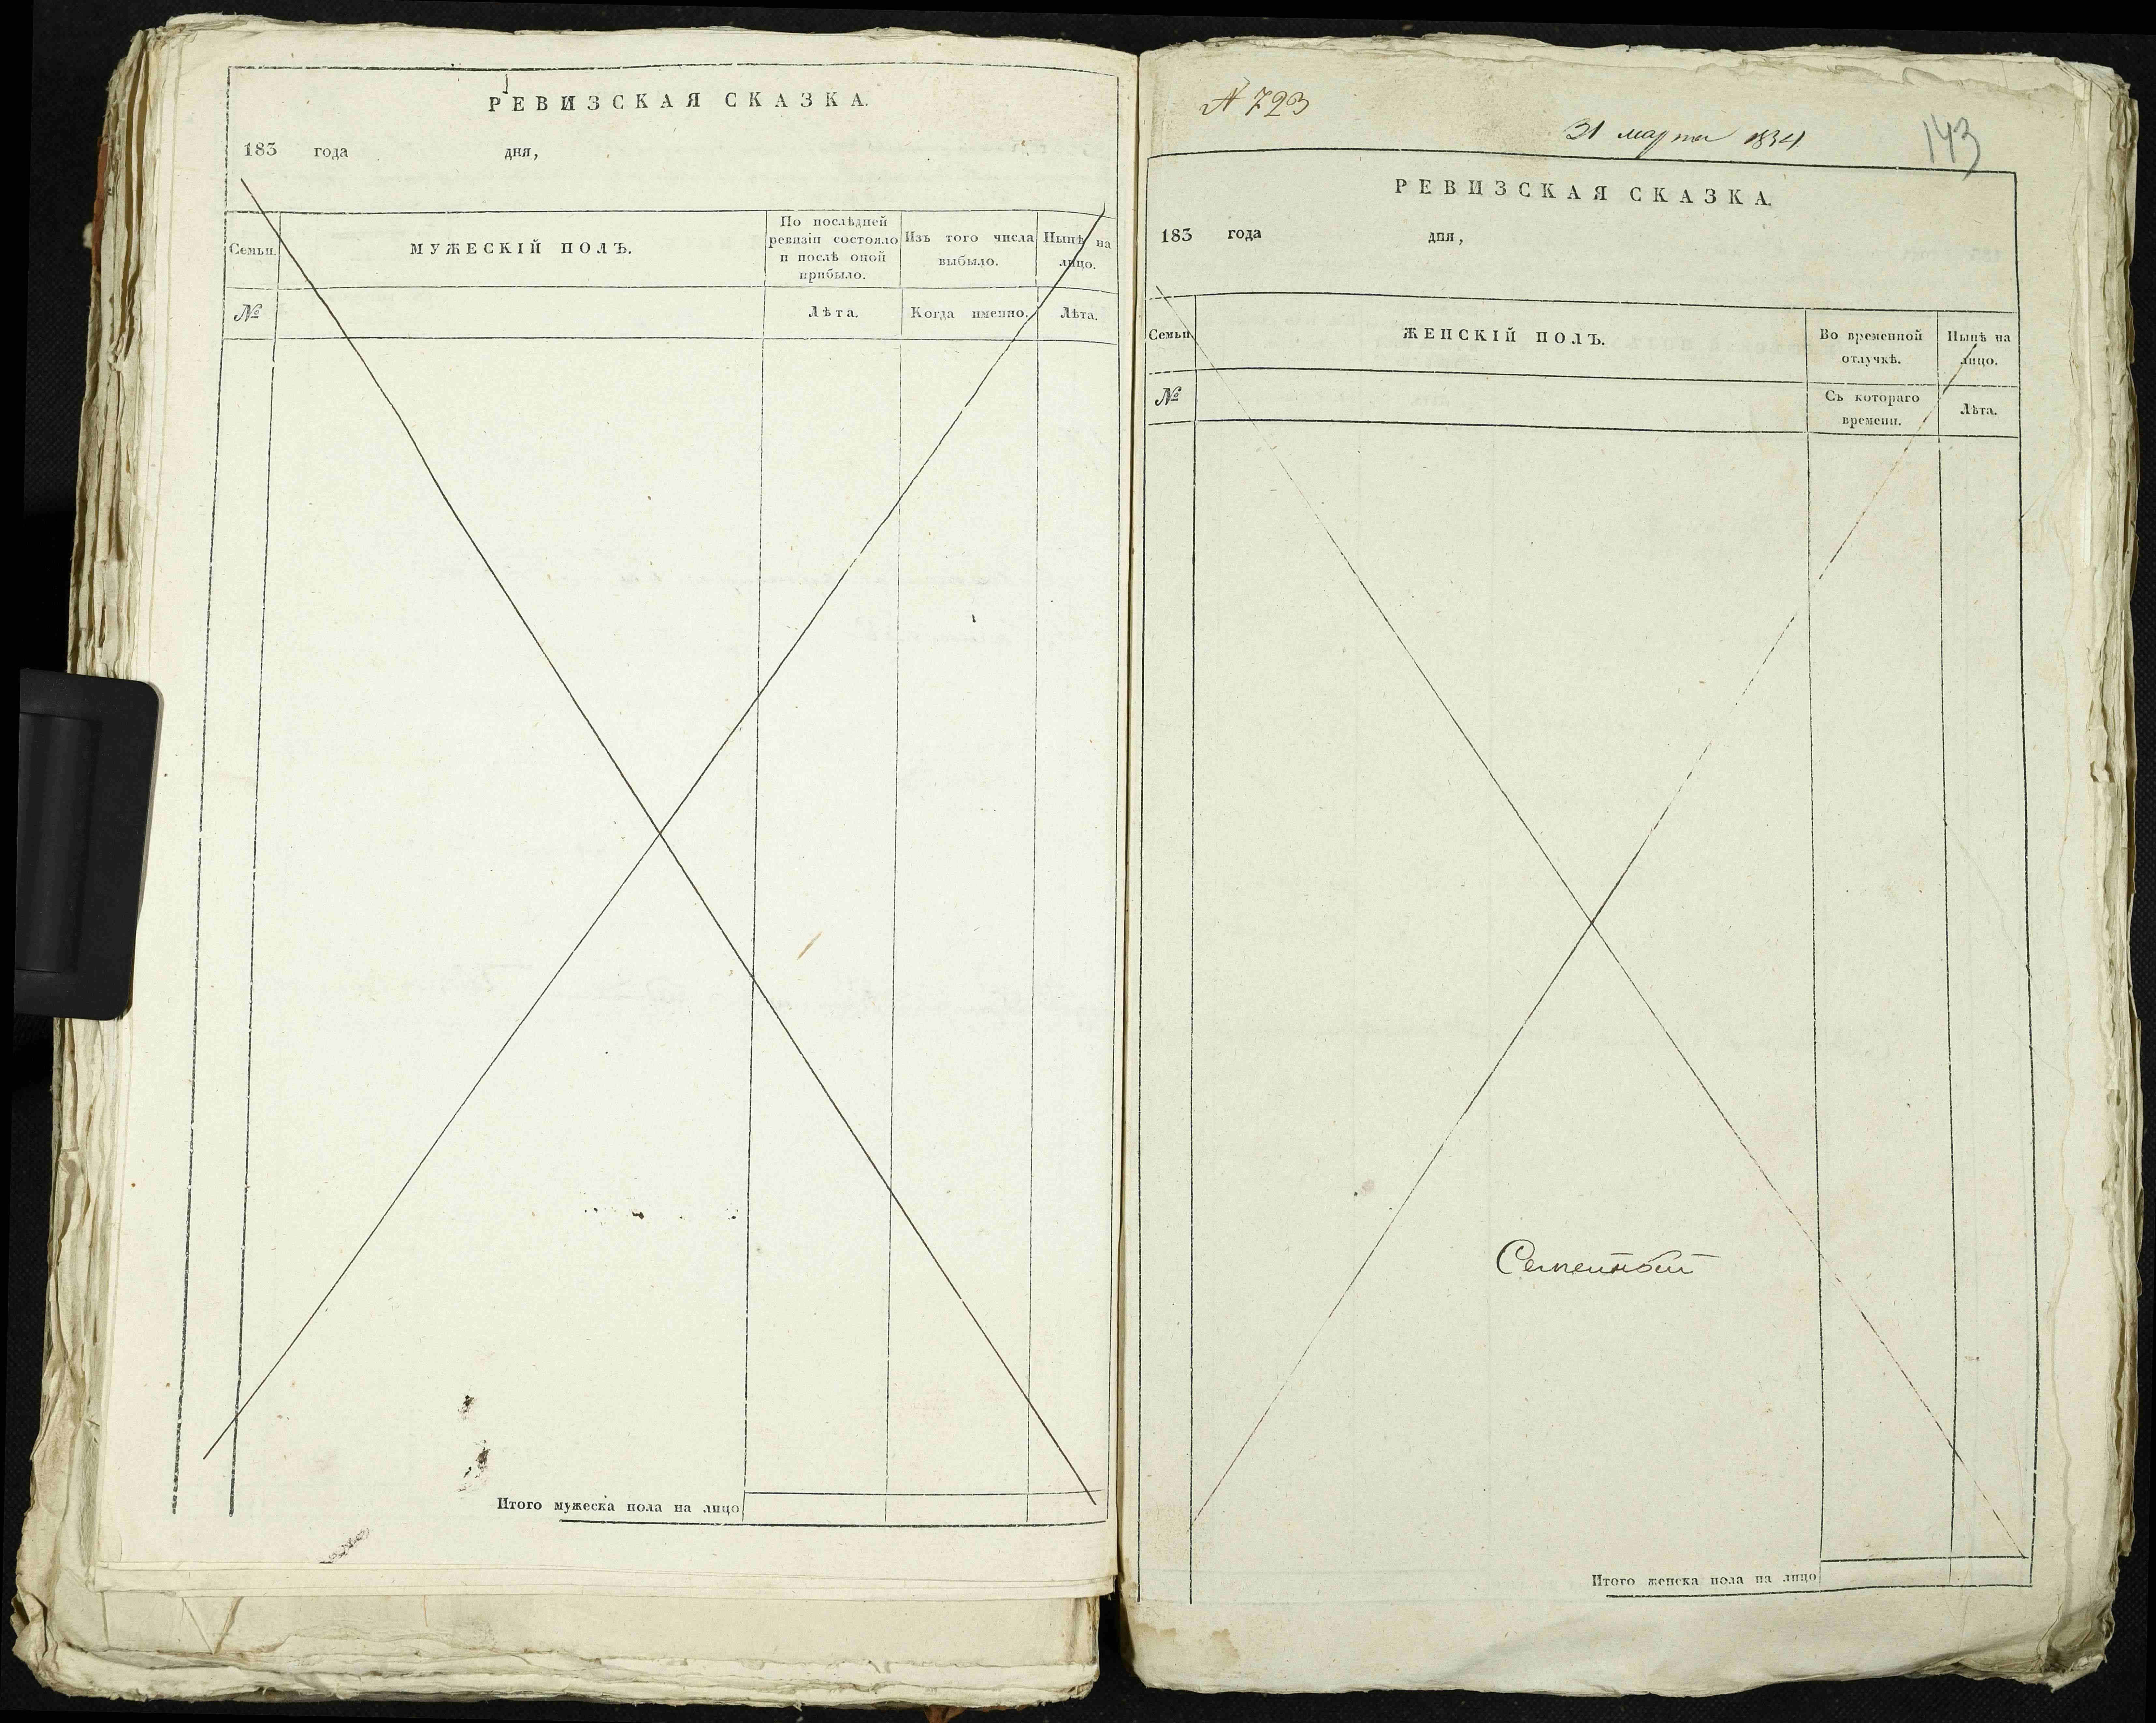 РЕВИЗСКАЯ СКАЗКА.
183 года дня,
Семьи. МУЖЕСКІЙ ПОЛЪ. По послѣдней ревизіи состояло и послѣ оной прибыло. Изъ того числа выбыло. Нынѣ на лицо.
№ Лѣта. Когда именно. Лѣта.
Итого мужеска пола на лицо
№ 723
31 марта 1834
143
РЕВИЗСКАЯ СКАЗКА.
183 года дня,
Семьи. ЖЕНСКІЙ ПОЛЪ. Во временной отлучкѣ. Нынѣ на лицо.
№ Съ котораго времени. Лѣта.
Итого женска пола на лицо